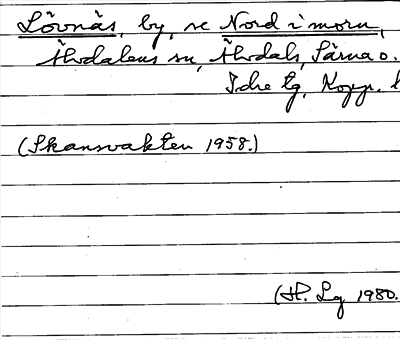 Lövnäs, by, se Nord i morn,
Älvdalens sn, Älvdals, Särna o.
Idre tg, Kopp. l
(Skansvakten 1958.)
(H. Lg 1980.